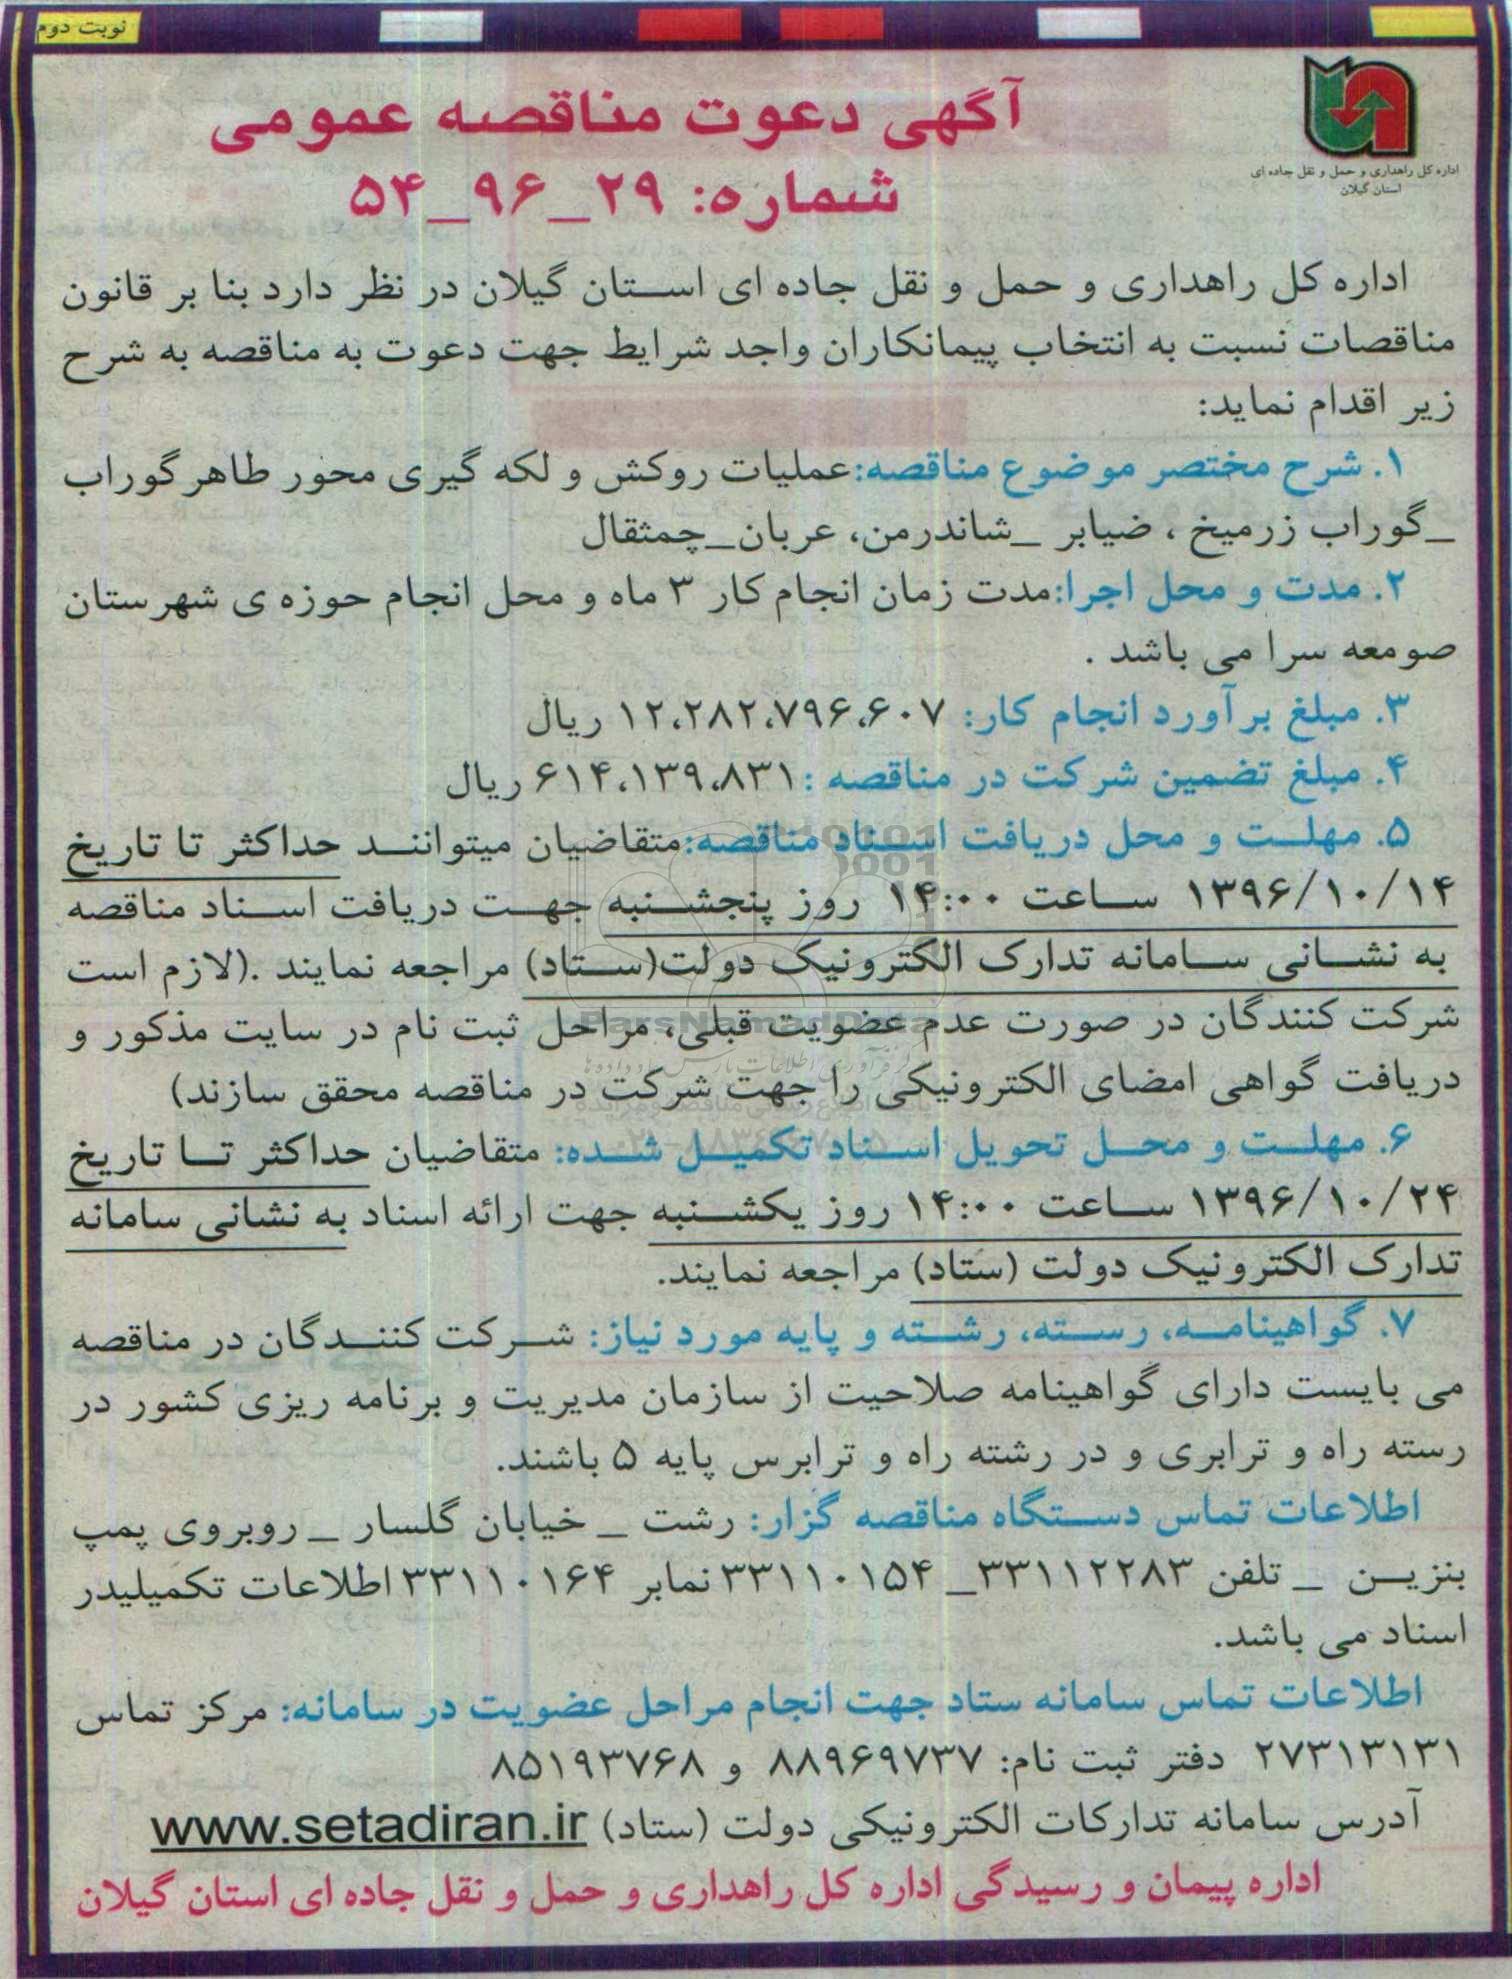 نوبت دوم
اداره کل راهداری و حمل و نقل جاده ای
استان گیلان
آگهی دعوت مناقصه عمومی
شماره: ۲۹_۹۶_۵۴
اداره کل راهداری و حمل و نقل جاده ای استان گیلان در نظر دارد بنا بر قانون
مناقصات نسبت به انتخاب پیمانکاران واجد شرایط جهت دعوت به مناقصه به شرح
زیر اقدام نماید:
۱. شرح مختصر موضوع مناقصه:عملیات روکش و لکه گیری محور طاهرگوراب
_گوراب زرمیخ ، ضیابر _شاندرمن، عربان_چمثقال
۲. مدت و محل اجرا:مدت زمان انجام کار ۳ ماه و محل انجام حوزه ی شهرستان
صومعه سرا می باشد .
۳. مبلغ برآورد انجام کار: ۱۲،۲۸۲،۷۹۶،۶۰۷ ریال
۴. مبلغ تضمین شرکت در مناقصه :۶۱۴،۱۳۹،۸۳۱ ریال
۵. مهلت و محل دریافت اسناد مناقصه:متقاضیان میتوانند حداکثر تا تاریخ
۱۳۹۶/۱۰/۱۴ ساعت ۱۴:۰۰ روز پنجشنبه جهت دریافت اسناد مناقصه
به نشانی سامانه تدارک الکترونیک دولت(ستاد) مراجعه نمایند .(لازم است
شرکت کنندگان در صورت عدم عضویت قبلی، مراحل ثبت نام در سایت مذکور و
دریافت گواهی امضای الکترونیکی را جهت شرکت در مناقصه محقق سازند)
۶. مهلت و محل تحویل اسناد تکمیل شده: متقاضیان حداکثر تا تاریخ
۱۳۹۶/۱۰/۲۴ ساعت ۱۴:۰۰ روز یکشنبه جهت ارائه اسناد به نشانی سامانه
تدارک الکترونیک دولت (ستاد) مراجعه نمایند.
۷. گواهینامه، رسته، رشته و پایه مورد نیاز: شرکت کنندگان در مناقصه
می بایست دارای گواهینامه صلاحیت از سازمان مدیریت و برنامه ریزی کشور در
رسته راه و ترابری و در رشته راه و ترابرس پایه ۵ باشند.
اطلاعات تماس دستگاه مناقصه گزار: رشت _ خیابان گلسار _ روبروی پمپ
بنزین _ تلفن ۳۳۱۱۲۲۸۳_ ۳۳۱۱۰۱۵۴ نمابر ۳۳۱۱۰۱۶۴ اطلاعات تکمیلیدر
اسناد می باشد.
اطلاعات تماس سامانه ستاد جهت انجام مراحل عضویت در سامانه: مرکز تماس
۲۷۳۱۳۱۳۱ دفتر ثبت نام: ۸۸۹۶۹۷۳۷ و ۸۵۱۹۳۷۶۸
آدرس سامانه تدارکات الکترونیکی دولت (ستاد) www.setadiran.ir
اداره پیمان و رسیدگی اداره کل راهداری و حمل و نقل جاده ای استان گیلان